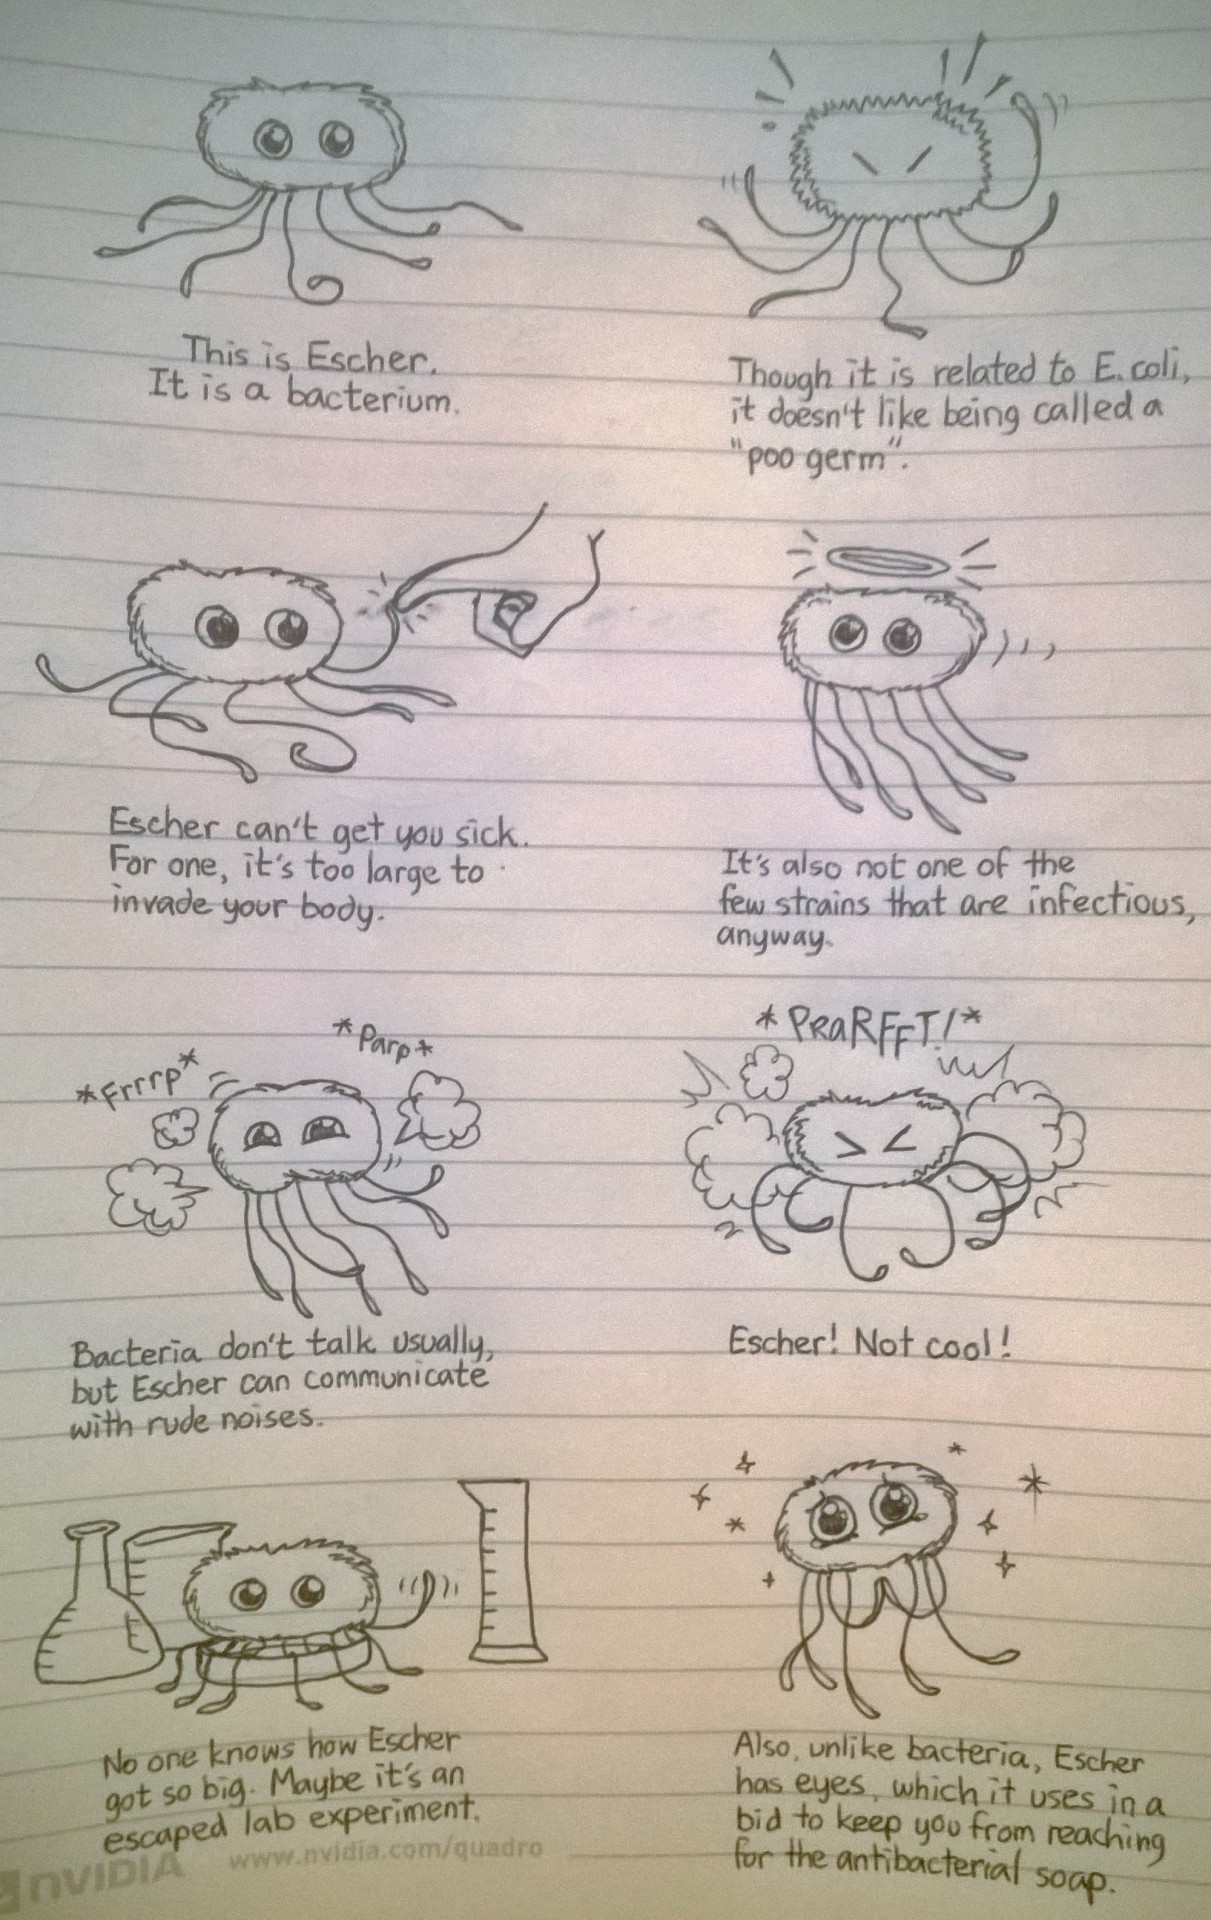 This is Escher.
It is a bacterium.
Though it is related to E. coli,
it doesn't like being called a
"poo germ".
Escher can't get you sick.
For one, it's too large to
invade your body.
It's also not one of the
few strains that are infectious,
anyway.
*Frrrp*
*Parp*
Bacteria don't talk usually,
but Escher can communicate
with rude noises.
*PRaRFFT!*
Escher! Not cool!
No one knows how Escher
got so big. Maybe it's an
escaped lab experiment.
Also, unlike bacteria, Escher
has eyes, which it uses in a
bid to keep you from reaching
for the antibacterial soap.
nVIDIA
www.nvidia.com/quadro